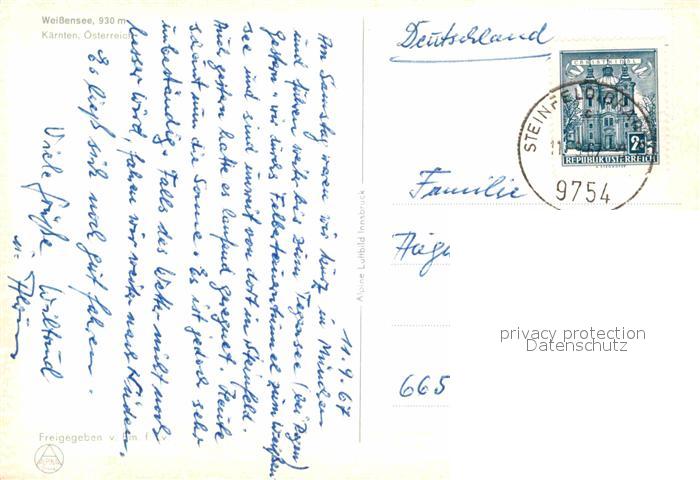 Weißensee, 930 m
Kärnten, Österreich
11.9.67
Am Samstag waren wir kurz in München
und fuhren weiter bis zum Tegernsee (bei Regen)
Gestern wir durchs Felbertauerntunnel zum Weißen-
see und sind unweit von dort in Steinfeld.
Auch gestern hatte es laufend geregnet. Heute
scheint nun die Sonne. Es ist jedoch sehr
unbeständig. Falls das Wetter nicht noch
besser wird, fahren wir weiter nach Süden.
Es ließ sich noch gut fahren.
Viele Grüße Wiltrud
u.
Freigegeben v.
ALPINE
Alpine Luftbild Innsbruck
Deutschland
CHRISTKINDL
2
REPUBLIK ÖSTERREICH
STEINFELD
9754
Familie
665
privacy protection
Datenschutz